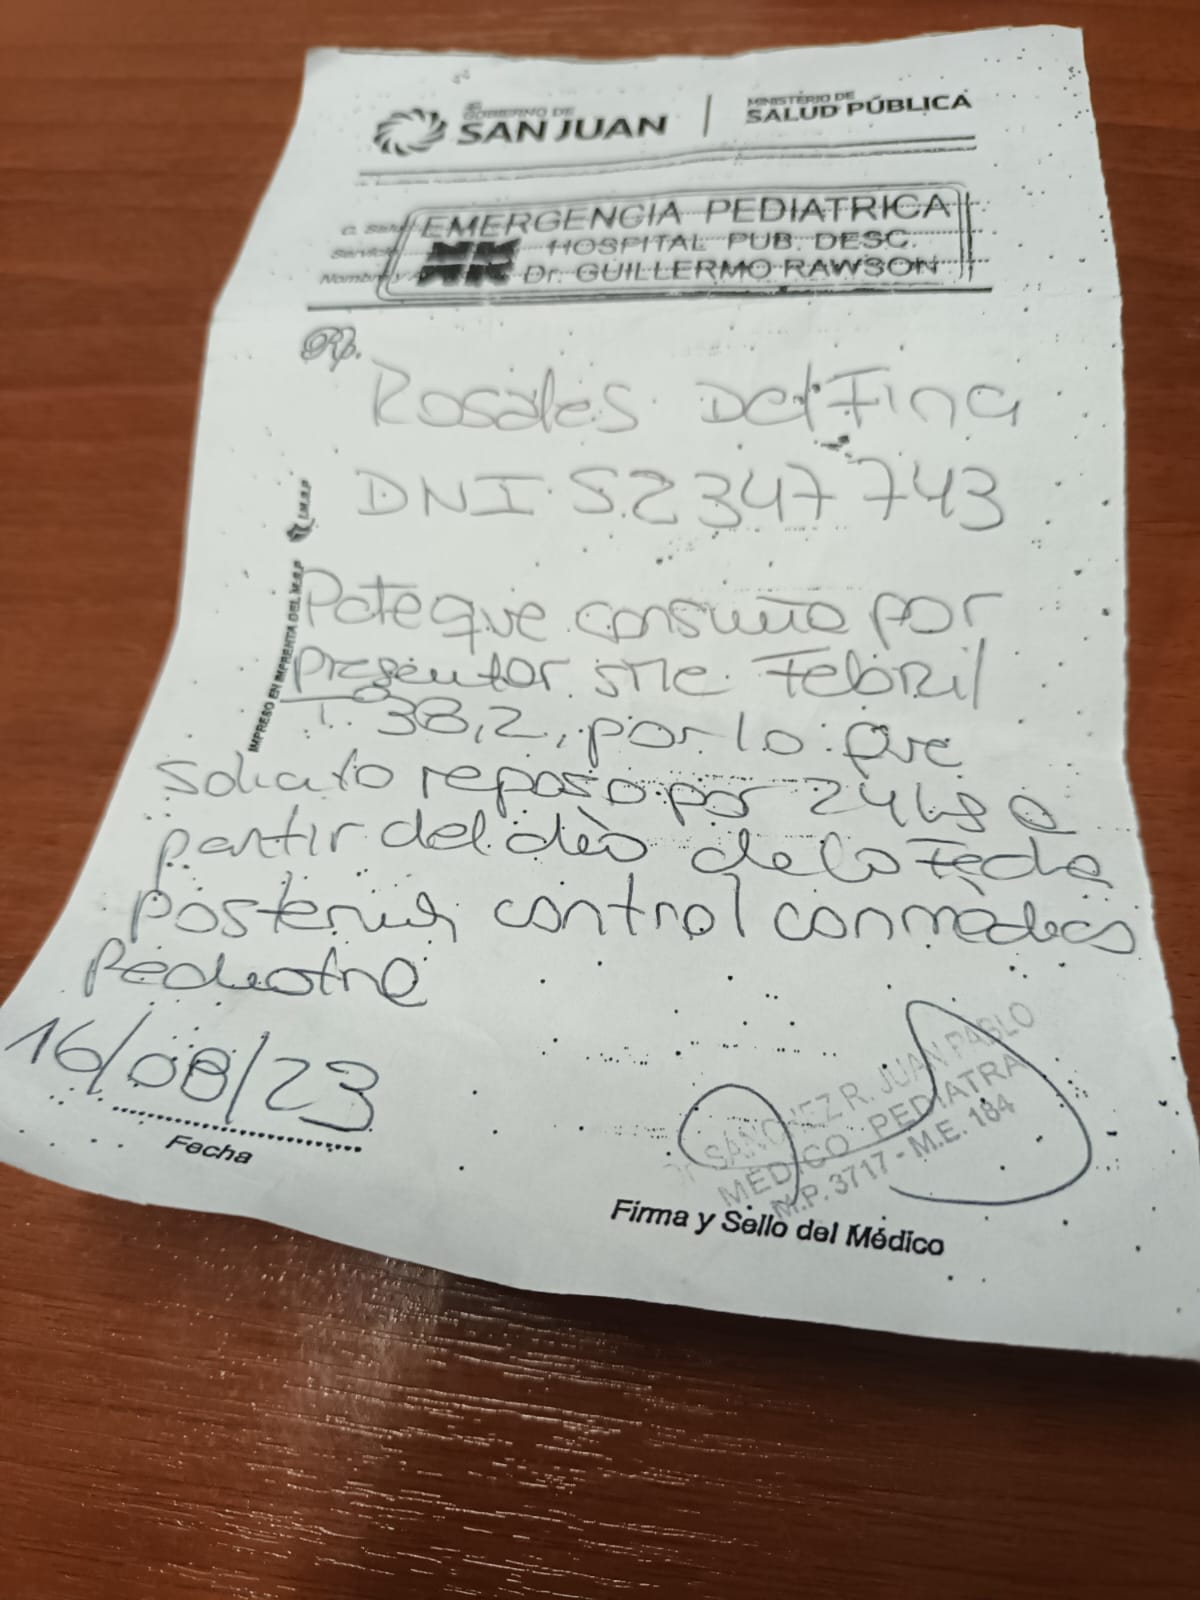 GOBIERNO DE
SAN JUAN
MINISTERIO DE
SALUD PÚBLICA
EMERGENCIA PEDIATRICA
HOSPITAL PUB. DESC.
Dr. GUILLERMO RAWSON
Rp.
Rosales Delfina
DNI: 52347743
Pcte que consulta por
presentar sme Febril
T° 38,2, por lo que
solicito reposo por 24 hs a
partir del día de la Fecha
Posterior control con médico
Pediatra
16/08/23
Fecha
SANCHEZ R. JUAN PABLO
MEDICO PEDIATRA
M.P. 3717 - M.E. 184
Firma y Sello del Médico
IMPRESO EN IMPRENTA DEL M.S.P
I.M.S.P